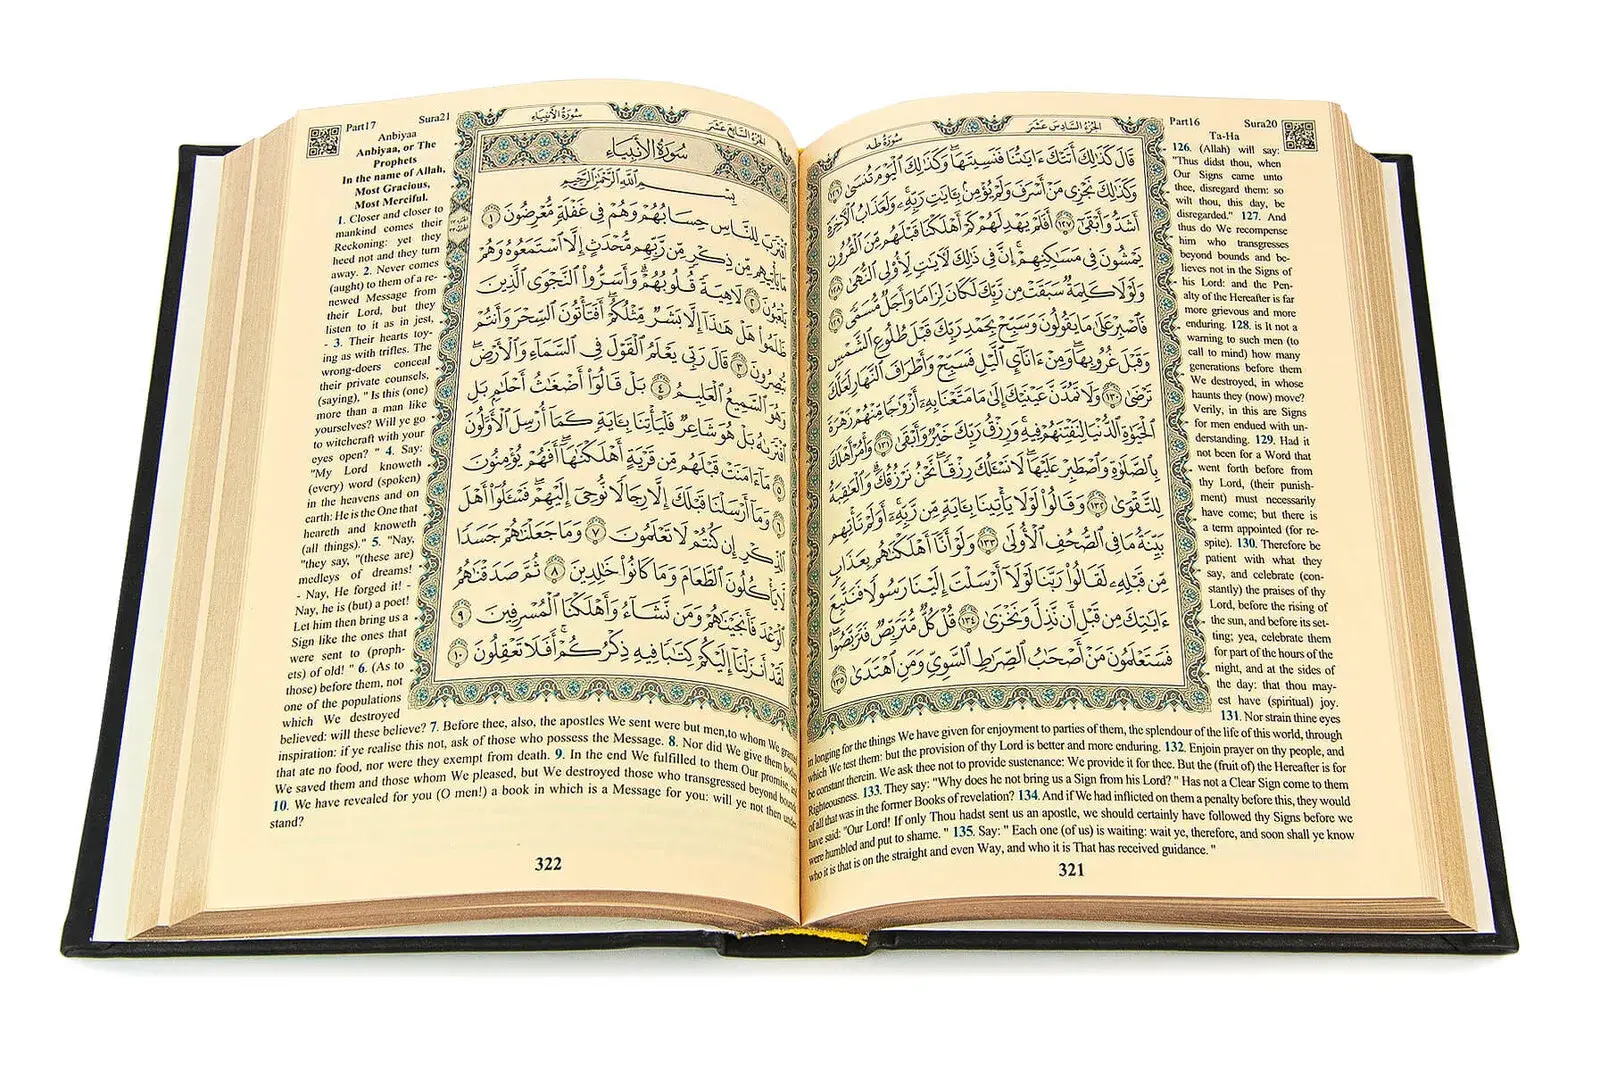 Part16 Sura20
سُورَةُ طه الجُزءُ السَّادِسَ عَشَرَ
قَالَ كَذَٰلِكَ أَتَتْكَ ءَايَٰتُنَا فَنَسِيتَهَا ۖ وَكَذَٰلِكَ ٱلْيَوْمَ تُنسَىٰ ١٢٦
وَكَذَٰلِكَ نَجْزِى مَنْ أَسْرَفَ وَلَمْ يُؤْمِنۢ بِـَٔايَٰتِ رَبِّهِۦ ۚ وَلَعَذَابُ ٱلْءَاخِرَةِ
أَشَدُّ وَأَبْقَىٰٓ ١٢٧ أَفَلَمْ يَهْدِ لَهُمْ كَمْ أَهْلَكْنَا قَبْلَهُم مِّنَ ٱلْقُرُونِ
يَمْشُونَ فِى مَسَٰكِنِهِمْ ۗ إِنَّ فِى ذَٰلِكَ لَءَايَٰتٍ لِّأُو۟لِى ٱلنُّهَىٰ ١٢٨
وَلَوْلَا كَلِمَةٌ سَبَقَتْ مِن رَّبِّكَ لَكَانَ لِزَامًا وَأَجَلٌ مُّسَمًّى ١٢٩
فَٱصْبِرْ عَلَىٰ مَا يَقُولُونَ وَسَبِّحْ بِحَمْدِ رَبِّكَ قَبْلَ طُلُوعِ ٱلشَّمْسِ
وَقَبْلَ غُرُوبِهَا ۖ وَمِنْ ءَانَآئِ ٱلَّيْلِ فَسَبِّحْ وَأَطْرَافَ ٱلنَّهَارِ لَعَلَّكَ
تَرْضَىٰ ١٣٠ وَلَا تَمُدَّنَّ عَيْنَيْكَ إِلَىٰ مَا مَتَّعْنَا بِهِۦٓ أَزْوَٰجًا مِّنْهُمْ زَهْرَةَ
ٱلْحَيَوٰةِ ٱلدُّنْيَا لِنَفْتِنَهُمْ فِيهِ ۚ وَرِزْقُ رَبِّكَ خَيْرٌ وَأَبْقَىٰ ١٣١ وَأْمُرْ أَهْلَكَ
بِٱلصَّلَوٰةِ وَٱصْطَبِرْ عَلَيْهَا ۖ لَا نَسْـَٔلُكَ رِزْقًا ۖ نَّحْنُ نَرْزُقُكَ ۗ وَٱلْعَٰقِبَةُ
لِلتَّقْوَىٰ ١٣٢ وَقَالُوا۟ لَوْلَا يَأْتِينَا بِـَٔايَةٍ مِّن رَّبِّهِۦٓ ۚ أَوَلَمْ تَأْتِهِم
بَيِّنَةُ مَا فِى ٱلصُّحُفِ ٱلْأُولَىٰ ١٣٣ وَلَوْ أَنَّآ أَهْلَكْنَٰهُم بِعَذَابٍ
مِّن قَبْلِهِۦ لَقَالُوا۟ رَبَّنَا لَوْلَآ أَرْسَلْتَ إِلَيْنَا رَسُولًا فَنَتَّبِعَ
ءَايَٰتِكَ مِن قَبْلِ أَن نَّذِلَّ وَنَخْزَىٰ ١٣٤ قُلْ كُلٌّ مُّتَرَبِّصٌ فَتَرَبَّصُوا۟ ۖ
فَسَتَعْلَمُونَ مَنْ أَصْحَٰبُ ٱلصِّرَٰطِ ٱلسَّوِىِّ وَمَنِ ٱهْتَدَىٰ ١٣٥
Ta-Ha
126. (Allah) will say:
"Thus didst thou, when
Our Signs came unto
thee, disregard them: so
wilt thou, this day, be
disregarded." 127. And
thus do We recompense
him who transgresses
beyond bounds and be-
lieves not in the Signs of
his Lord: and the Pen-
alty of the Hereafter is far
more grievous and more
enduring. 128. is It not a
warning to such men (to
call to mind) how many
generations before them
We destroyed, in whose
haunts they (now) move?
Verily, in this are Signs
for men endued with un-
derstanding. 129. Had it
not been for a Word that
went forth before from
thy Lord, (their punish-
ment) must necessarily
have come; but there is
a term appointed (for re-
spite). 130. Therefore be
patient with what they
say, and celebrate (con-
stantly) the praises of thy
Lord, before the rising of
the sun, and before its set-
ting; yea, celebrate them
for part of the hours of the
night, and at the sides of
the day: that thou may-
est have (spiritual) joy.
131. Nor strain thine eyes
in longing for the things We have given for enjoyment to parties of them, the splendour of the life of this world, through
which We test them: but the provision of thy Lord is better and more enduring. 132. Enjoin prayer on thy people, and
be constant therein. We ask thee not to provide sustenance: We provide it for thee. But the (fruit of) the Hereafter is for
Righteousness. 133. They say: "Why does he not bring us a Sign from his Lord? " Has not a Clear Sign come to them
of all that was in the former Books of revelation? 134. And if We had inflicted on them a penalty before this, they would
have said: "Our Lord! If only Thou hadst sent us an apostle, we should certainly have followed thy Signs before we
were humbled and put to shame. " 135. Say: " Each one (of us) is waiting: wait ye, therefore, and soon shall ye know
who it is that is on the straight and even Way, and who it is That has received guidance. "
321
Part17 Sura21
سُورَةُ الأَنبِيَاءِ الجُزءُ السَّابِعَ عَشَرَ
سُورَةُ الأَنبِيَاءِ
بِسْمِ ٱللَّهِ ٱلرَّحْمَٰنِ ٱلرَّحِيمِ
ٱقْتَرَبَ لِلنَّاسِ حِسَابُهُمْ وَهُمْ فِى غَفْلَةٍ مُّعْرِضُونَ ١
مَا يَأْتِيهِم مِّن ذِكْرٍ مِّن رَّبِّهِم مُّحْدَثٍ إِلَّا ٱسْتَمَعُوهُ وَهُمْ
يَلْعَبُونَ ٢ لَاهِيَةً قُلُوبُهُمْ ۗ وَأَسَرُّوا۟ ٱلنَّجْوَى ٱلَّذِينَ
ظَلَمُوا۟ هَلْ هَٰذَآ إِلَّا بَشَرٌ مِّثْلُكُمْ ۖ أَفَتَأْتُونَ ٱلسِّحْرَ وَأَنتُمْ
تُبْصِرُونَ ٣ قَالَ رَبِّى يَعْلَمُ ٱلْقَوْلَ فِى ٱلسَّمَآءِ وَٱلْأَرْضِ ۖ
وَهُوَ ٱلسَّمِيعُ ٱلْعَلِيمُ ٤ بَلْ قَالُوٓا۟ أَضْغَٰثُ أَحْلَٰمٍۭ بَلِ
ٱفْتَرَىٰهُ بَلْ هُوَ شَاعِرٌ فَلْيَأْتِنَا بِـَٔايَةٍ كَمَآ أُرْسِلَ ٱلْأَوَّلُونَ
٥ مَآ ءَامَنَتْ قَبْلَهُم مِّن قَرْيَةٍ أَهْلَكْنَٰهَآ ۖ أَفَهُمْ يُؤْمِنُونَ
٦ وَمَآ أَرْسَلْنَا قَبْلَكَ إِلَّا رِجَالًا نُّوحِىٓ إِلَيْهِمْ ۖ فَسْـَٔلُوٓا۟ أَهْلَ
ٱلذِّكْرِ إِن كُنتُمْ لَا تَعْلَمُونَ ٧ وَمَا جَعَلْنَٰهُمْ جَسَدًا
لَّا يَأْكُلُونَ ٱلطَّعَامَ وَمَا كَانُوا۟ خَٰلِدِينَ ٨ ثُمَّ صَدَقْنَٰهُمُ
ٱلْوَعْدَ فَأَنجَيْنَٰهُمْ وَمَن نَّشَآءُ وَأَهْلَكْنَا ٱلْمُسْرِفِينَ ٩
لَقَدْ أَنزَلْنَآ إِلَيْكُمْ كِتَٰبًا فِيهِ ذِكْرُكُمْ ۖ أَفَلَا تَعْقِلُونَ ١٠
Anbiyaa
Anbiyaa, or The
Prophets
In the name of Allah,
Most Gracious,
Most Merciful.
1. Closer and closer to
mankind comes their
Reckoning: yet they
heed not and they turn
away. 2. Never comes
(aught) to them of a re-
newed Message from
their Lord, but they
listen to it as in jest,
- 3. Their hearts toy-
ing as with trifles. The
wrong-doers conceal
their private counsels,
(saying), " Is this (one)
more than a man like
yourselves? Will ye go
to witchcraft with your
eyes open? " 4. Say:
"My Lord knoweth
(every) word (spoken)
in the heavens and on
earth: He is the One that
heareth and knoweth
(all things)." 5. "Nay,
"they say, "(these are)
medleys of dreams!
- Nay, He forged it! -
Nay, he is (but) a poet!
Let him then bring us a
Sign like the ones that
were sent to (proph-
ets) of old! " 6. (As to
those) before them, not
one of the populations
which We destroyed
believed: will these believe? 7. Before thee, also, the apostles We sent were but men,to whom We granted
inspiration: if ye realise this not, ask of those who possess the Message. 8. Nor did We give them bodies
that ate no food, nor were they exempt from death. 9. In the end We fulfilled to them Our promise, and
We saved them and those whom We pleased, but We destroyed those who transgressed beyond bounds.
10. We have revealed for you (O men!) a book in which is a Message for you: will ye not then under-
stand?
322